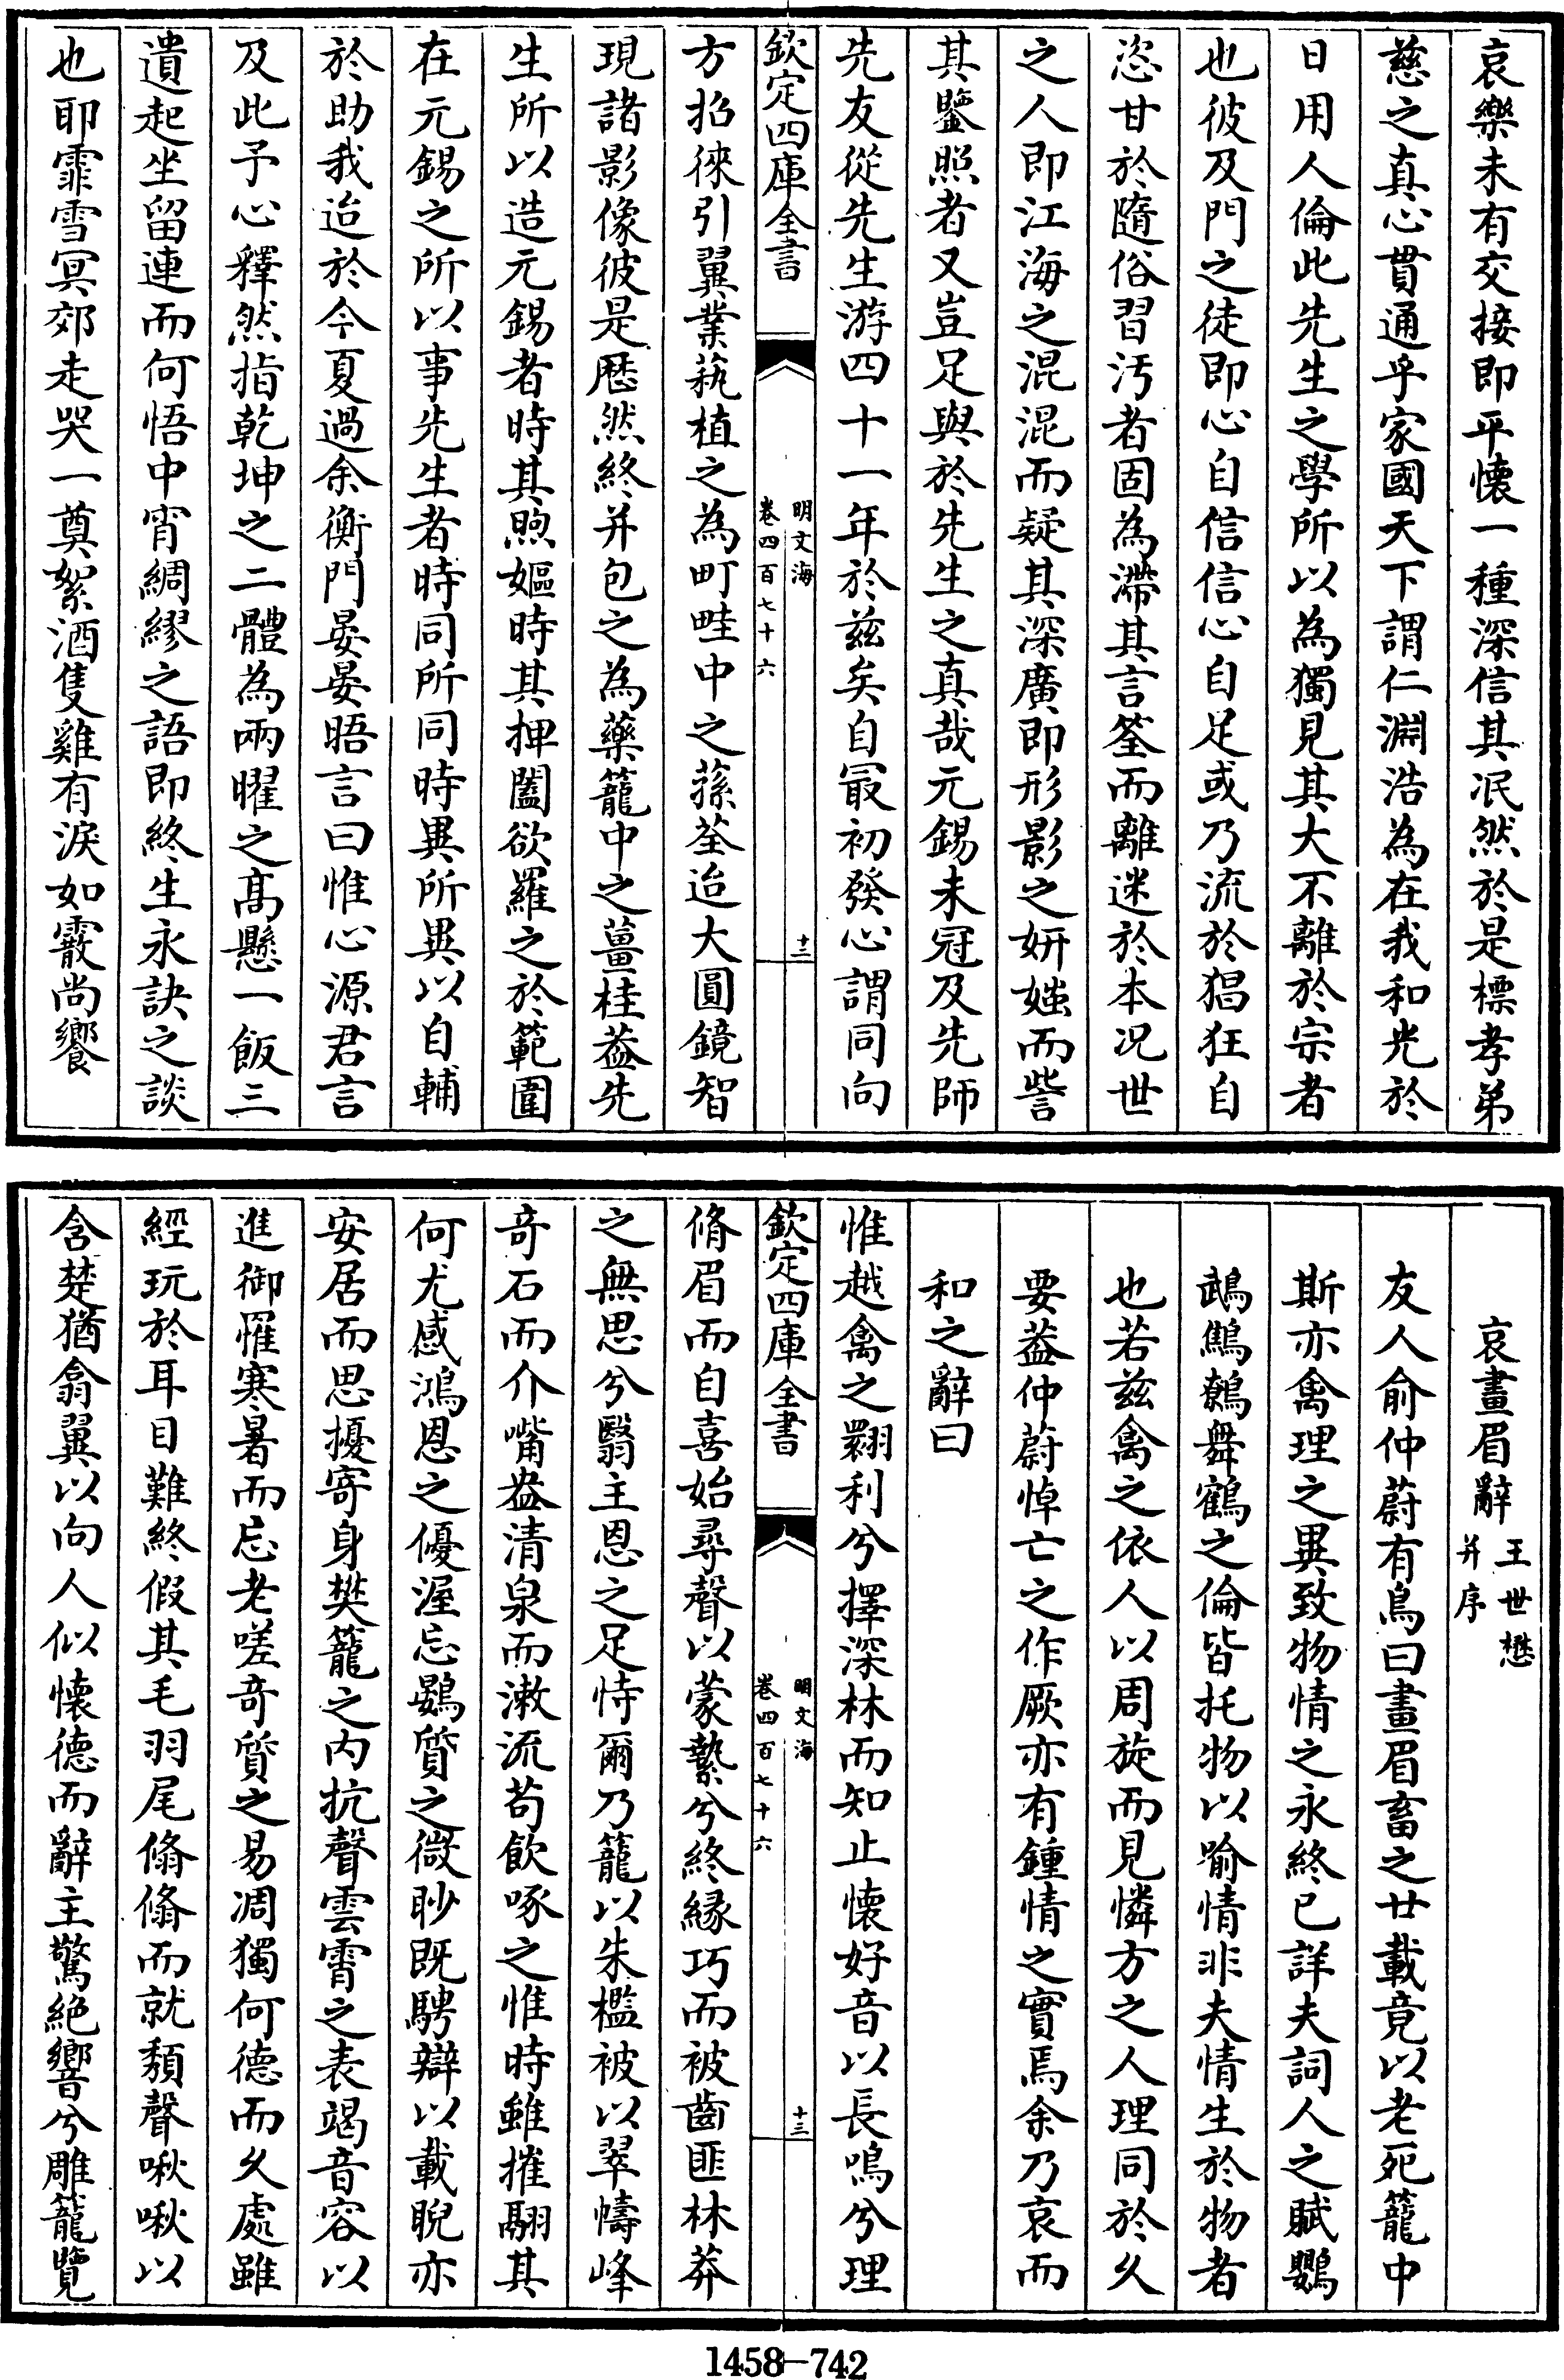 哀樂未有交接即平懷一種深信其泯然於是標孝弟
慈之真心貫通乎家國天下謂仁淵浩為在我和光於
日用人倫此先生之學所以為獨見其大不離於宗者
也彼及門之徒即心自信信心自足或乃流於猖狂自
恣甘於隨俗習汚者固為滯其言筌而離迷於本况世
之人即江海之混混而疑其深廣即形影之妍媸而訾
其鑒照者又豈足與於先生之真哉元錫未冠及先師
先友從先生游四十一年於兹矣自最初發心謂同向
欽定四庫全書
明文海
卷四百七十六
十二
方招徠引翼業蓺植之為町畦中之蓀荃迨大圓鏡智
現諸影像彼是厯然終并包之為藥籠中之薑桂葢先
生所以造元錫者時其煦嫗時其捭闔欲羅之於範圍
在元錫之所以事先生者時同所同時異所異以自輔
於助我迨於今夏過余衡門晏晏晤言曰惟心源君言
及此予心釋然指乾坤之二體為兩曜之髙懸一飯三
遺起坐留連而何悟中宵綢繆之語即終生永訣之談
也耶霏雪冥郊走哭一奠絮酒隻雞有淚如霰尚饗
哀畫眉辭 王世懋 并序
友人俞仲蔚有鳥曰畫眉畜之廿載竟以老死籠中
斯亦禽理之異致物情之永終已詳夫詞人之賦鸚
鵡鷦鷯舞鶴之倫皆托物以喻情非夫情生於物者
也若兹禽之依人以周旋而見憐方之人理同於久
要葢仲蔚悼亡之作厥亦有鍾情之實焉余乃哀而
和之辭曰
惟越禽之翾利兮擇深林而知止懷好音以長鳴兮理
欽定四庫全書
明文海
卷四百七十六
十三
脩眉而自喜始尋聲以蒙縶兮終緣巧而被齒匪林莽
之無思兮翳主恩之足恃爾乃籠以朱檻被以翠幬峰
奇石而介嘴盎清泉而潄流苟飲啄之惟時雖摧翮其
何尤感鴻恩之優渥忘鷃質之微眇既騁辯以載睨亦
安居而思擾寄身樊籠之内抗聲雲霄之表竭音容以
進御罹寒暑而忘老嗟奇質之易凋獨何德而久處雖
經玩於耳目難終假其毛羽尾翛翛而就頽聲啾啾以
含楚猶翕翼以向人似懷德而辭主驚絶響兮雕籠覽
1458—742